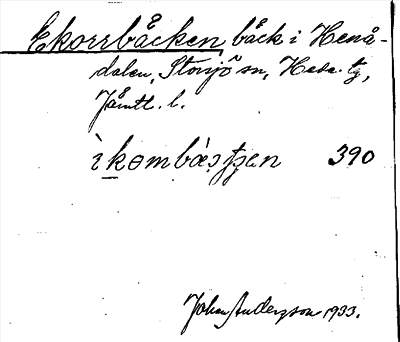 Ekorrbåcken, båck i Henå-
dalen, Storsjö sn, Hede tg,
Jåmtl. l.
390
Johan Anderzson 1933.